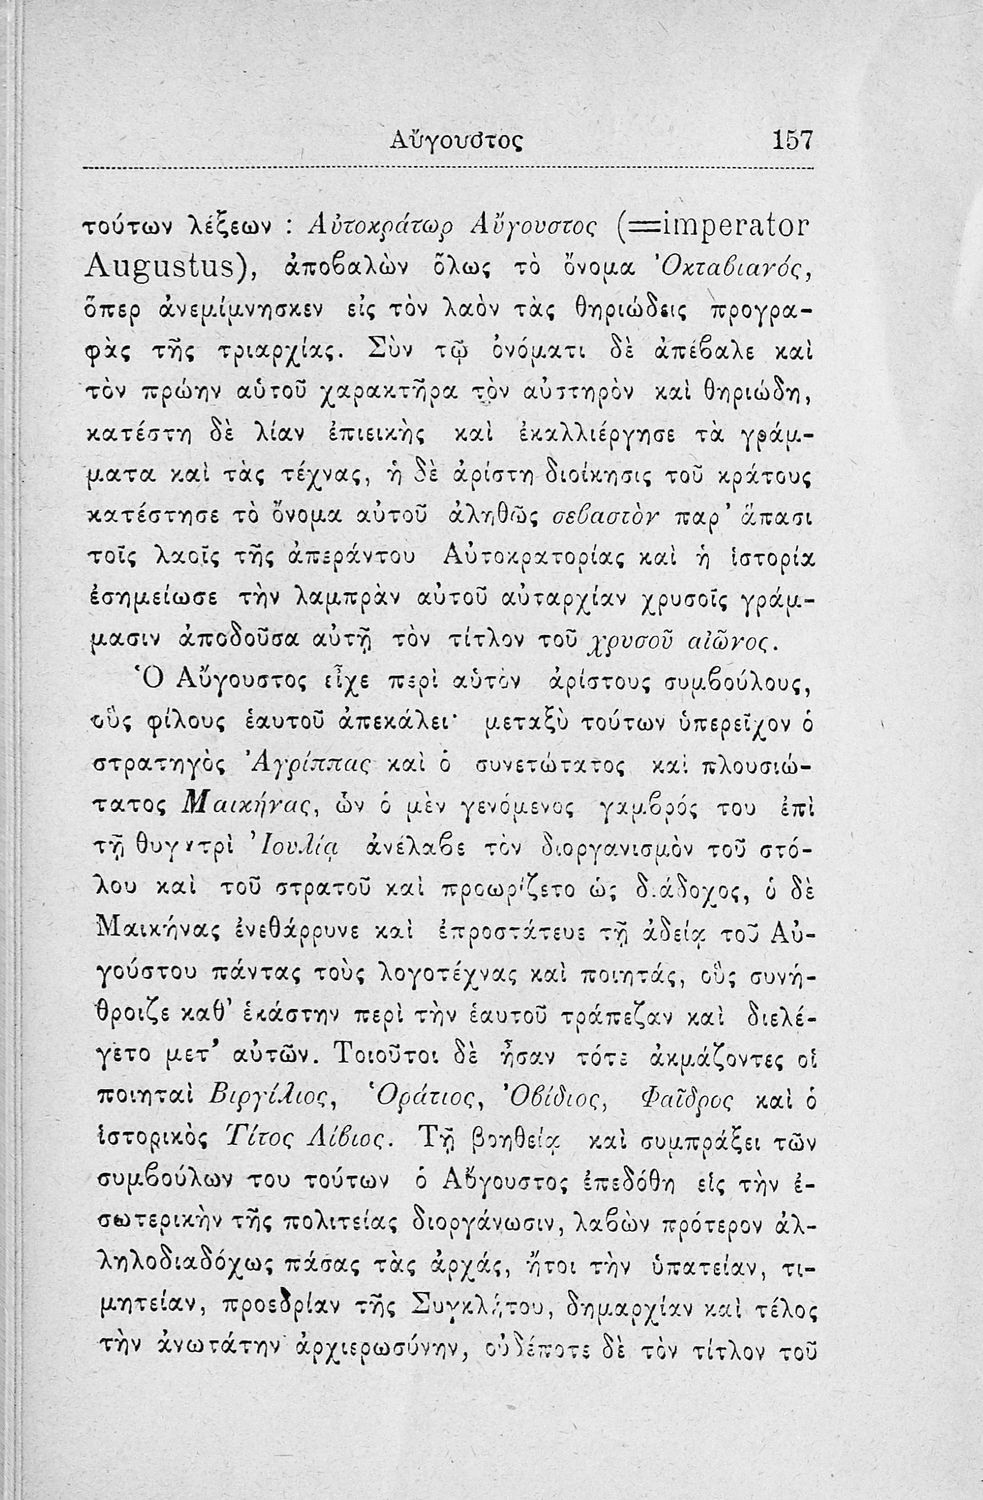 Αὔγουστος 157
τούτων λέξεων : Αὐτοκράτωρ Αὔγουστος (=imperator
Augustus), ἀποβαλὼν ὅλως τὸ ὄνομα Ὀκταβιανός,
ὅπερ ἀνεμίμνησκεν εἰς τὸν λαὸν τὰς θηριώδεις προγρα-
φὰς τῆς τριαρχίας. Σὺν τῷ ὀνόματι δὲ ἀπέβαλε καὶ
τὸν πρώην αὑτοῦ χαρακτῆρα τὸν αὐστηρὸν καὶ θηριώδη,
κατέστη δὲ λίαν ἐπιεικὴς καὶ ἐκαλλιέργησε τὰ γράμ-
ματα καὶ τὰς τέχνας, ἡ δὲ ἀρίστη διοίκησις τοῦ κράτους
κατέστησε τὸ ὄνομα αὐτοῦ ἀληθῶς σεβαστὸν παρ' ἅπασι
τοῖς λαοῖς τῆς ἀπεράντου Αὐτοκρατορίας καὶ ἡ ἱστορία
ἐσημείωσε τὴν λαμπρὰν αὐτοῦ αὐταρχίαν χρυσοῖς γράμ-
μασιν ἀποδοῦσα αὐτῇ τὸν τίτλον τοῦ χρυσοῦ αἰῶνος.
Ὁ Αὔγουστος εἶχε περὶ αὑτὸν ἀρίστους συμβούλους,
οὓς φίλους ἑαυτοῦ ἀπεκάλει· μεταξὺ τούτων ὑπερεῖχον ὁ
στρατηγὸς Ἀγρίππας καὶ ὁ συνετώτατος καὶ πλουσιώ-
τατος Μαικήνας, ὧν ὁ μὲν γενόμενος γαμβρός του ἐπὶ
τῇ θυγατρὶ Ἰουλίᾳ ἀνέλαβε τὸν διοργανισμὸν τοῦ στό-
λου καὶ τοῦ στρατοῦ καὶ προωρίζετο ὡς διάδοχος, ὁ δὲ
Μαικήνας ἐνεθάρρυνε καὶ ἐπροστάτευε τῇ ἀδείᾳ τοῦ Αὐ-
γούστου πάντας τοὺς λογοτέχνας καὶ ποιητάς, οὓς συνή-
θροιζε καθ' ἑκάστην περὶ τὴν ἑαυτοῦ τράπεζαν καὶ διελέ-
γετο μετ' αὐτῶν. Τοιοῦτοι δὲ ἦσαν τότε ἀκμάζοντες οἱ
ποιηταὶ Βιργίλιος, Ὁράτιος, Ὀβίδιος, Φαῖδρος καὶ ὁ
ἱστορικὸς Τίτος Λίβιος. Τῇ βοηθείᾳ καὶ συμπράξει τῶν
συμβούλων του τούτων ὁ Αὔγουστος ἐπεδόθη εἰς τὴν ἐ-
σωτερικὴν τῆς πολιτείας διοργάνωσιν, λαβὼν πρότερον ἀλ-
ληλοδιαδόχως πάσας τὰς ἀρχάς, ἤτοι τὴν ὑπατείαν, τι-
μητείαν, προεδρίαν τῆς Συγκλήτου, δημαρχίαν καὶ τέλος
τὴν ἀνωτάτην ἀρχιερωσύνην, οὐδέποτε δὲ τὸν τίτλον τοῦ